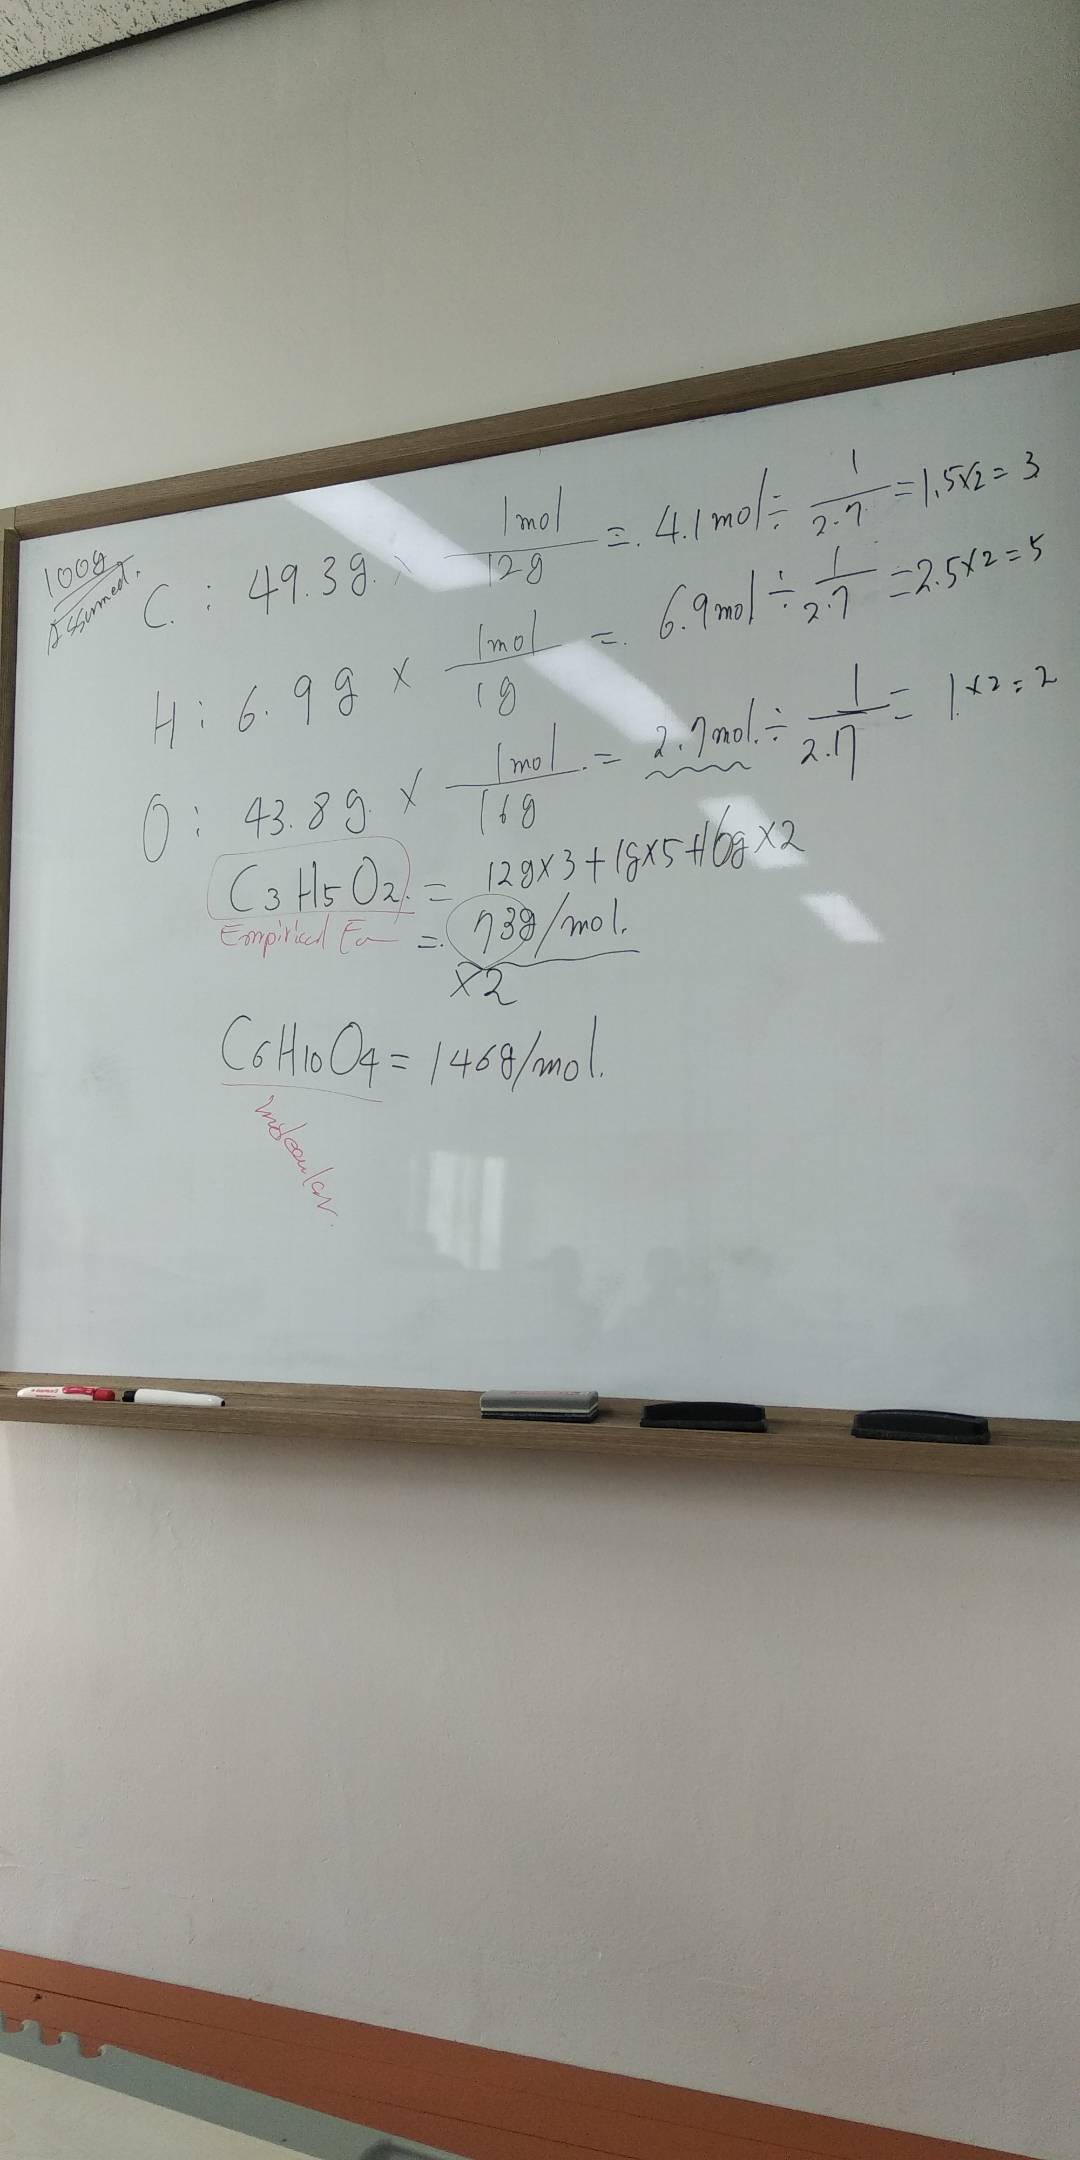 100g
Assumed.
C : 49.3g. × 1mol/12g = 4.1mol ÷ 1/2.7 = 1.5×2 = 3
H : 6.9g × 1mol/1g = 6.9mol ÷ 1/2.7 = 2.5×2 = 5
O : 43.8g. × 1mol/16g = 2.7mol. ÷ 1/2.7 = 1.×2 = 2
C3H5O2. = 12g×3 + 1g×5 + 16g×2
Empirical = 73g/mol.
×2
C6H10O4 = 146g/mol.
molecular.